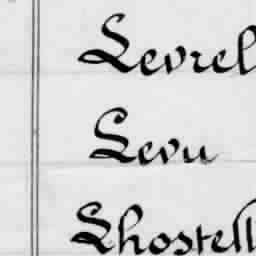 Levrel
Levu
Lhostell